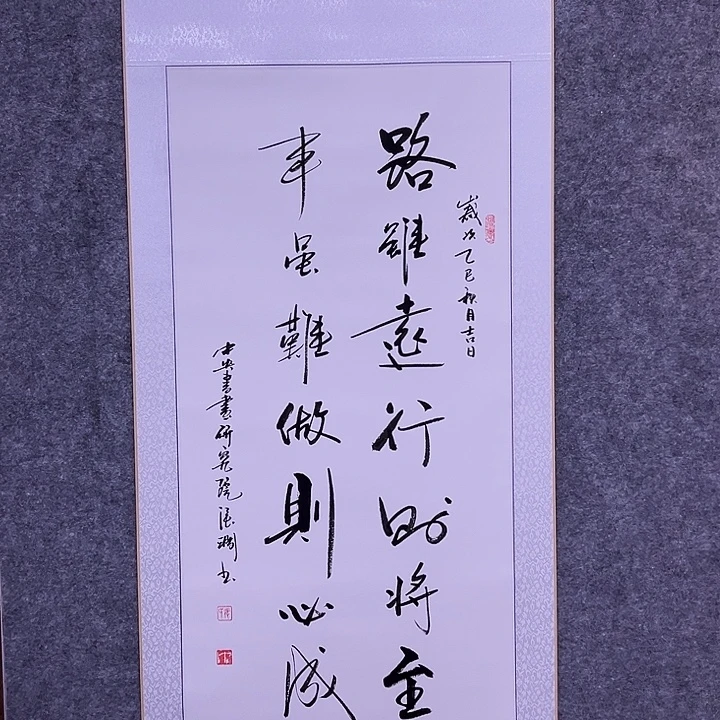 歲次乙巳秋月吉日
路雖遠行则將至
事虽難做則必成
中央書畫研究院书